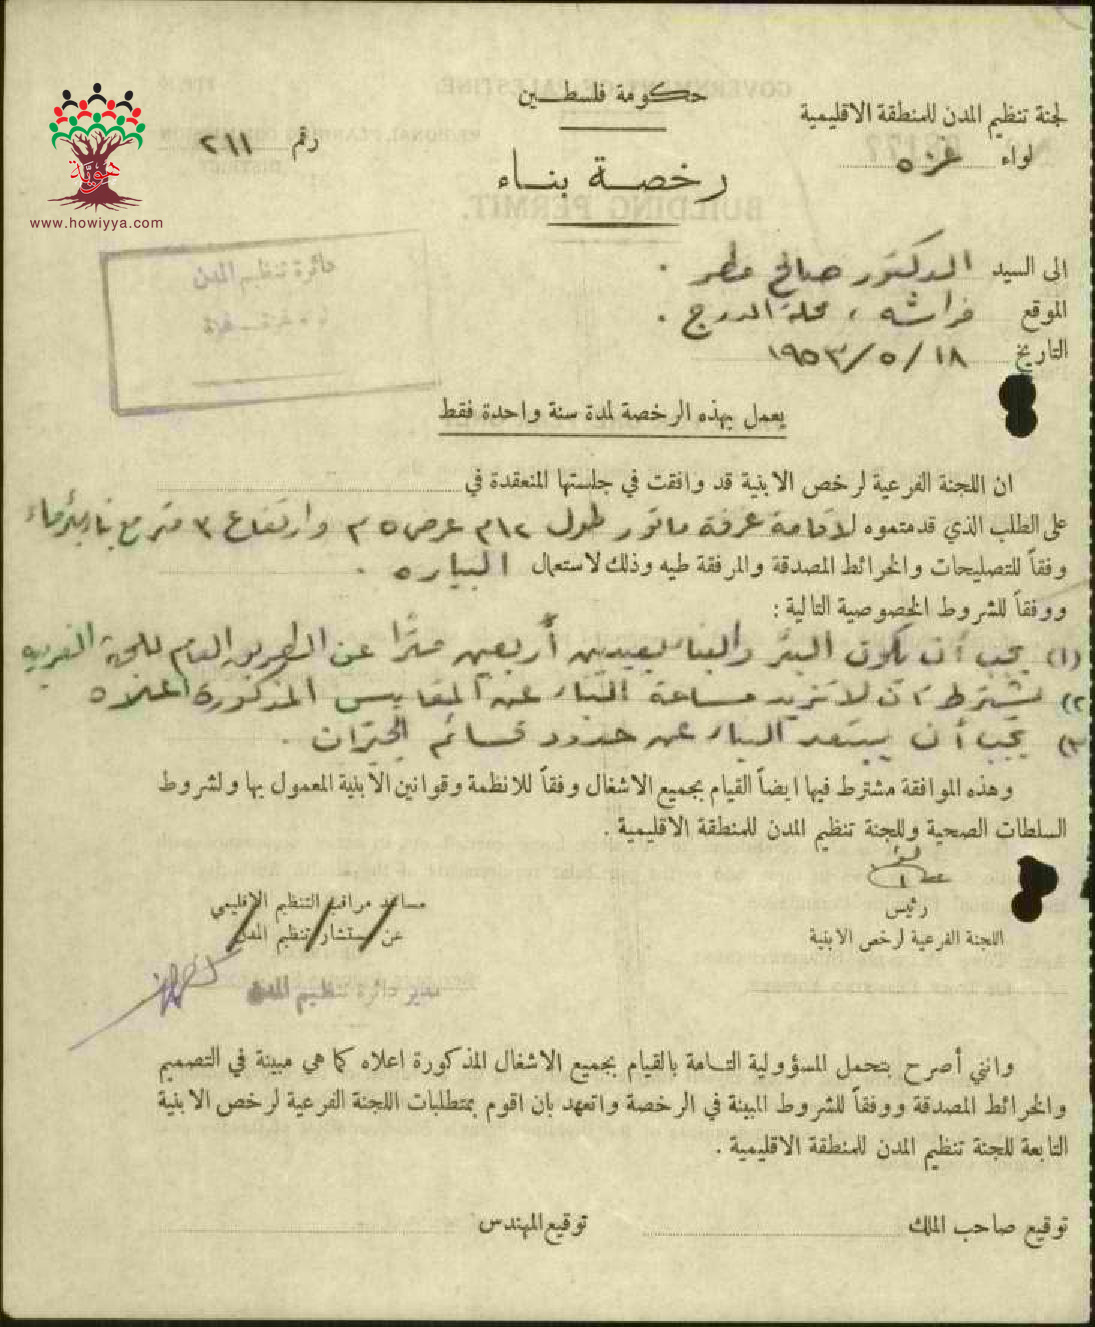 حكومة فلسطين
لجنة تنظيم المدن للمنطقة الاقليمية
لواء غزه
رقم ٢١١
هوية
www.howiyya.com
رخصة بناء
دائرة تنظيم المدن
الى السيد الدكتور صالح مطر .
الموقع فراشه ، محلة الدرج .
التاريخ ١٨ / ٥ / ١٩٥٣
يعمل بهذه الرخصة لمدة سنة واحدة فقط
ان اللجنة الفرعية لرخص الابنية قد وافقت في جلستها المنعقدة في
على الطلب الذي قدمتموه لاقامة غرفة ماتور طول ١٢م عرض ٥م وارتفاع ٣ متر مع بناء بئر ماء
وفقاً للتصليحات والخرائط المصدقة والمرفقة طيه وذلك لاستعمال البياره .
ووفقاً للشروط الخصوصية التالية :
(١) يجب أن يكون البئر والبناء بعيدين أربعين متراً عن الطريق العام للجهة الغربيه
٢) يشترط ان لا تزيد مساحة البناء عن المقاييس المذكورة اعلاه
٣) يجب أن يبتعد البناء عن حدود قسائم الجيران .
وهذه الموافقة مشترط فيها ايضاً القيام بجميع الاشغال وفقاً للانظمة وقوانين الابنية المعمول بها ولشروط
السلطات الصحية وللجنة تنظيم المدن للمنطقة الاقليمية .
رئيس
اللجنة الفرعية لرخص الابنية
مساعد مراقب التنظيم الاقليمي
عن مستشار تنظيم المدن
مدير دائرة تنظيم المدن
وانني أصرح بتحمل المسؤولية التامة بالقيام بجميع الاشغال المذكورة اعلاه كما هي مبينة في التصميم
والخرائط المصدقة ووفقاً للشروط المبينة في الرخصة واتعهد بان اقوم بمتطلبات اللجنة الفرعية لرخص الابنية
التابعة للجنة تنظيم المدن للمنطقة الاقليمية .
توقيع صاحب الملك
توقيع المهندس